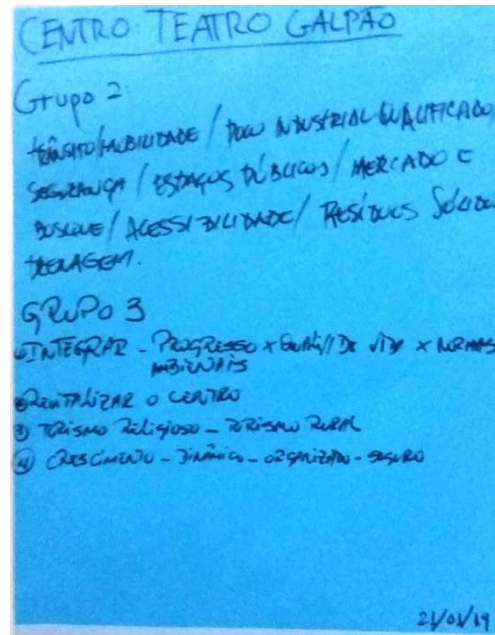 CENTRO: TEATRO GALPÃO
Grupo 2:
TRÂNSITO/MOBILIDADE / POLO INDUSTRIAL QUALIFICADO/
SEGURANÇA / ESPAÇOS PÚBLICOS / MERCADO E
BOSQUE / ACESSIBILIDADE / RESÍDUOS SÓLIDOS
DRENAGEM.
GRUPO 3
① INTEGRAR - PROGRESSO x QUALI// DE VIDA x NORMAS
AMBIENTAIS
② REVITALIZAR O CENTRO
③ TURISMO RELIGIOSO - TURISMO RURAL
④ CRESCIMENTO - DINÂMICO - ORGANIZADO - SEGURO